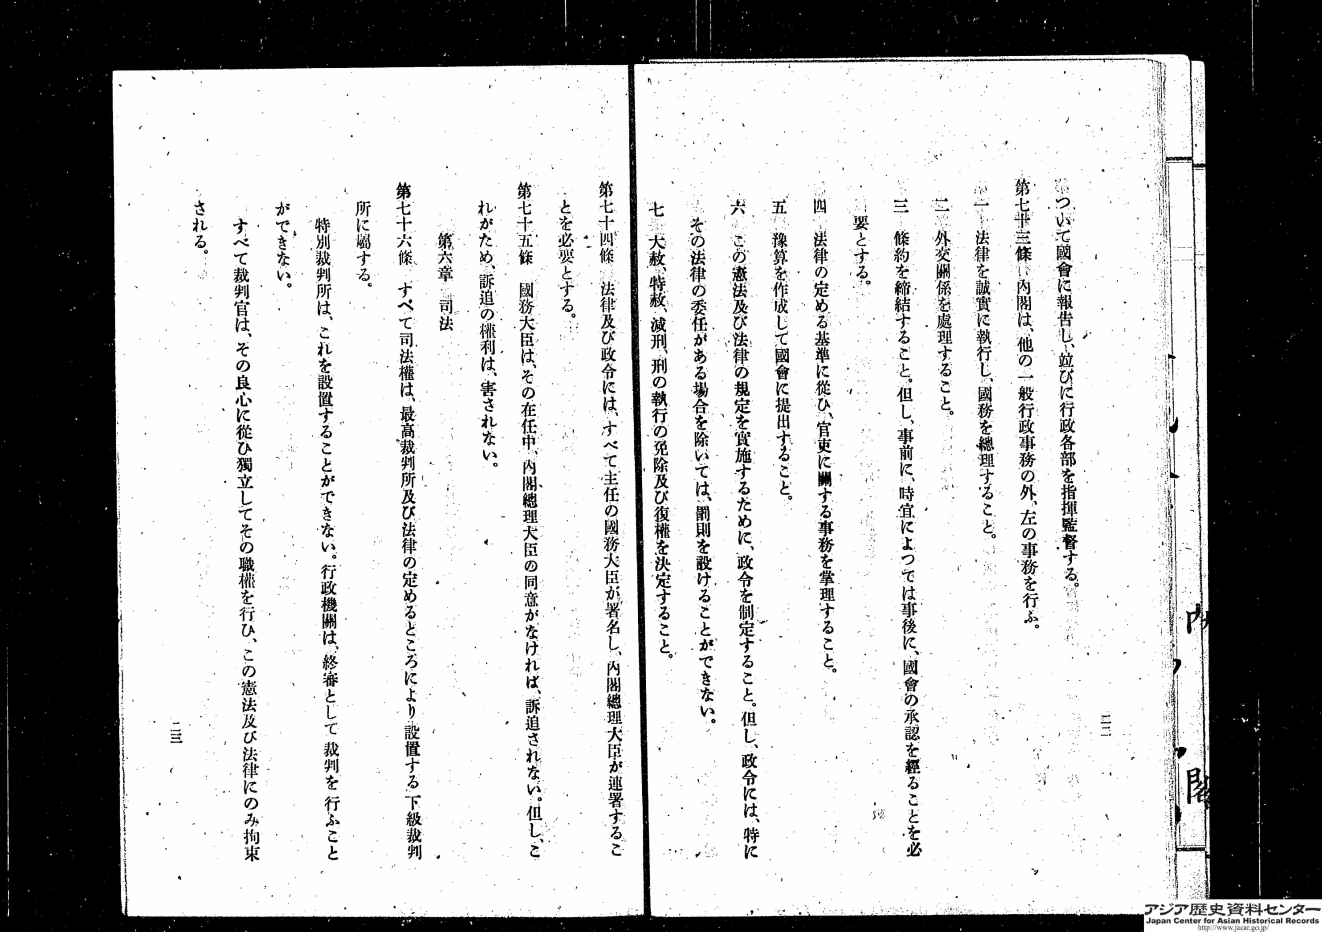 ついて國會に報告し、竝びに行政各部を指揮監督する。
第七十三條　內閣は、他の一般行政事務の外、左の事務を行ふ。
一　法律を誠實に執行し、國務を總理すること。
二　外交關係を處理すること。
三　條約を締結すること。但し、事前に、時宜によつては事後に、國會の承認を經ることを必
要とする。
四　法律の定める基準に從ひ、官吏に關する事務を掌理すること。
五　豫算を作成して國會に提出すること。
六　この憲法及び法律の規定を實施するために、政令を制定すること。但し、政令には、特に
その法律の委任がある場合を除いては、罰則を設けることができない。
七　大赦、特赦、減刑、刑の執行の免除及び復權を決定すること。
二二
第七十四條　法律及び政令には、すべて主任の國務大臣が署名し、內閣總理大臣が連署するこ
とを必要とする。
第七十五條　國務大臣は、その在任中、內閣總理大臣の同意がなければ、訴追されない。但し、こ
れがため、訴追の權利は、害されない。
第六章　司法
第七十六條　すべて司法權は、最高裁判所及び法律の定めるところにより設置する下級裁判
所に屬する。
特別裁判所は、これを設置することができない。行政機關は、終審として裁判を行ふこと
ができない。
すべて裁判官は、その良心に從ひ獨立してその職權を行ひ、この憲法及び法律にのみ拘束
される。
二三
內
閣
アジア歴史資料センター
Japan Center for Asian Historical Records
http://www.jacar.go.jp/